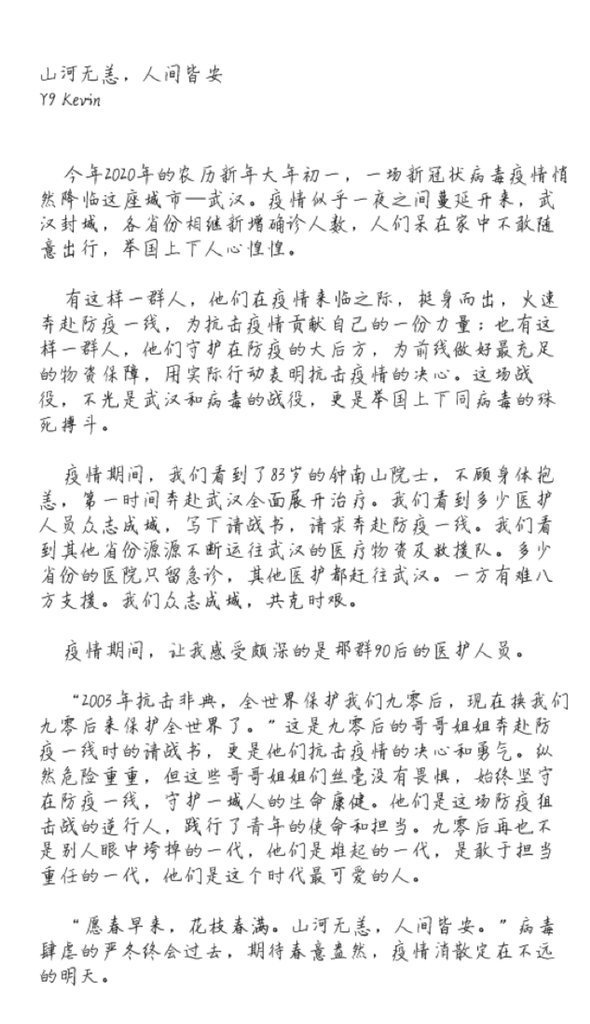 山河无恙，人间皆安
Y9 Kevin
今年2020年的农历新年大年初一，一场新冠状病毒疫情悄
然降临这座城市—武汉。疫情似乎一夜之间蔓延开来，武
汉封城，各省份相继新增确诊人数，人们呆在家中不敢随
意出行，举国上下人心惶惶。
有这样一群人，他们在疫情来临之际，挺身而出，火速
奔赴防疫一线，为抗击疫情贡献自己的一份力量；也有这
样一群人，他们守护在防疫的大后方，为前线做好最充足
的物资保障，用实际行动表明抗击疫情的决心。这场战
役，不光是武汉和病毒的战役，更是举国上下同病毒的殊
死搏斗。
疫情期间，我们看到了83岁的钟南山院士，不顾身体抱
恙，第一时间奔赴武汉全面展开治疗。我们看到多少医护
人员众志成城，写下请战书，请求奔赴防疫一线。我们看
到其他省份源源不断运往武汉的医疗物资及救援队。多少
省份的医院只留急诊，其他医护都赶往武汉。一方有难八
方支援。我们众志成城，共克时艰。
疫情期间，让我感受颇深的是那群90后的医护人员。
“2003年抗击非典，全世界保护我们九零后，现在换我们
九零后来保护全世界了。”这是九零后的哥哥姐姐奔赴防
疫一线时的请战书，更是他们抗击疫情的决心和勇气。纵
然危险重重，但这些哥哥姐姐们丝毫没有畏惧，始终坚守
在防疫一线，守护一城人的生命康健。他们是这场防疫狙
击战的逆行人，践行了青年的使命和担当。九零后再也不
是别人眼中垮掉的一代，他们是雄起的一代，是敢于担当
重任的一代，他们是这个时代最可爱的人。
“愿春早来，花枝春满。山河无恙，人间皆安。”病毒
肆虐的严冬终会过去，期待春意盎然，疫情消散定在不远
的明天。